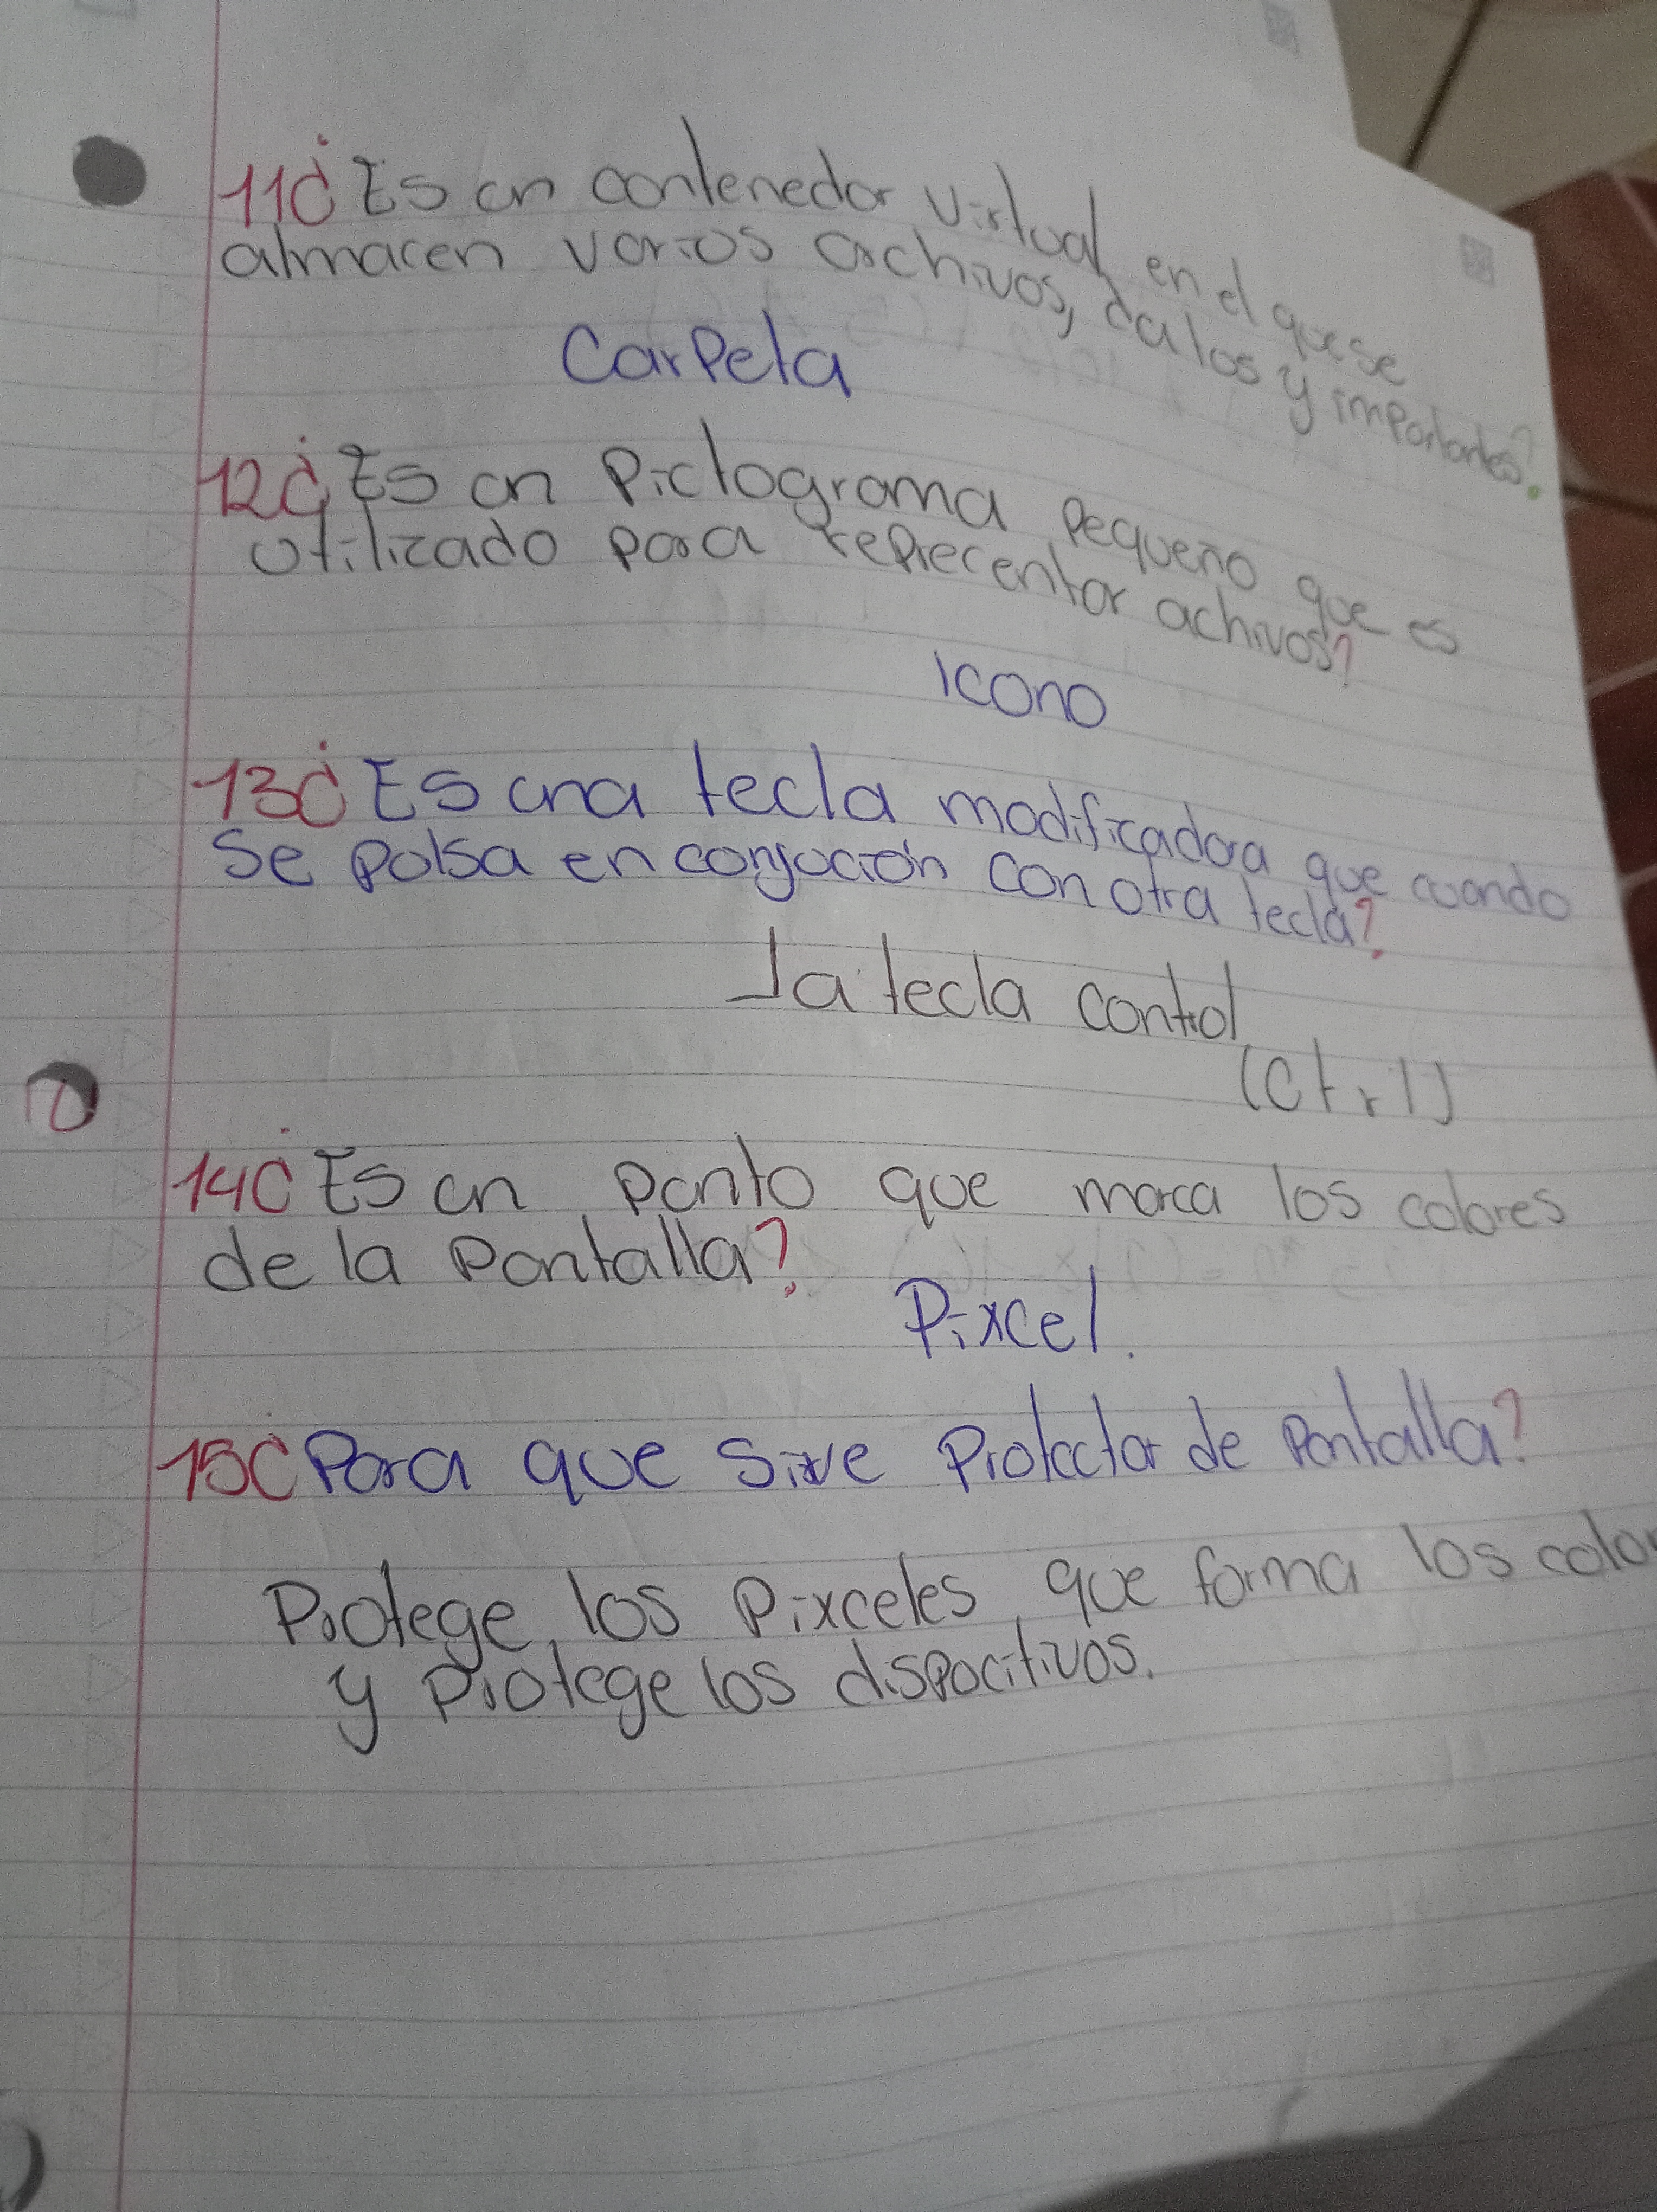 11¿Es un contenedor virtual en el que se
almacen varios archivos, datos y importantes?
Carpeta
12¿Es un Pictograma Pequeño que es
utilizado para reprecentar achivos?
Icono
13¿Es una tecla modificadora que cuando
se pulsa en conjución con otra tecla?
La tecla control
(Ctrl)
14¿Es un punto que marca los colores
de la Pantalla?
Pixcel.
15¿Para que sirve Protector de Pantalla?
Protege los Pixceles, que forma los color
y Protege los dispocitivos.